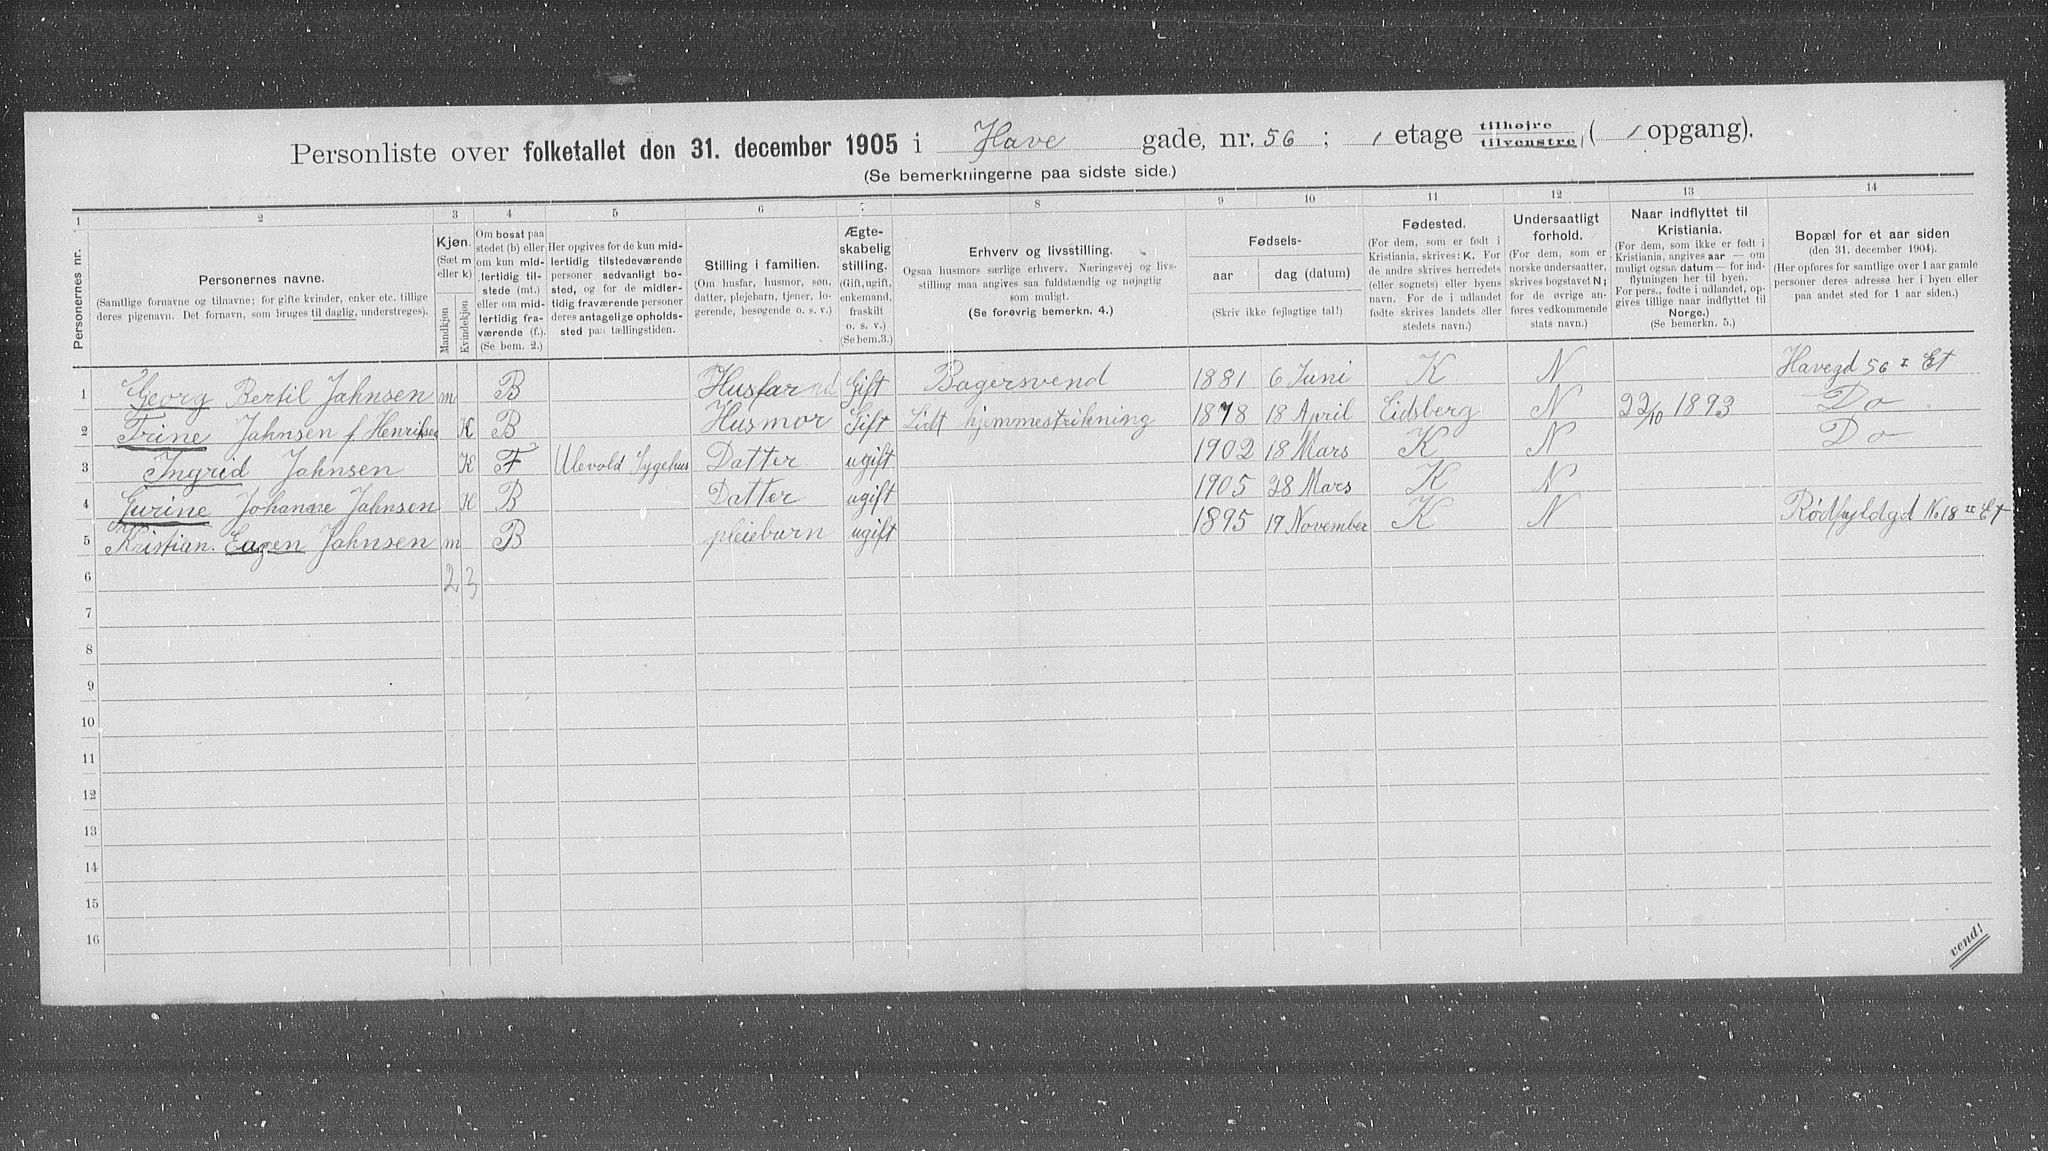 Personliste over folketallet den 31. december 1905 i Have gade, nr. 56 ; 1 etage tilhøjre tilvenstre ( 1 opgang).
(Se bemerkningerne paa sidste side.)
1 2 3 4 5 6 7 8 9 10 11 12 13 14
Personernes nr.
Personernes navne.
(Samtlige fornavne og tilnavne; for gifte kvinder, enker etc. tillige
deres pigenavn. Det fornavn, som bruges til daglig, understreges).
Kjøn.
(Sæt m
eller k)
Mandkjøn
Kvindekjøn
Om bosat paa
stedet (b) eller
om kun mid-
lertidig til-
stede (mt.)
eller om mid-
lertidig fra-
værende (f.).
(Se bem. 2.)
Her opgives for de kun mid-
lertidig tilstedeværende
personer sedvanligt bo-
sted, og for de midler-
tidig fraværende personer
deres antagelige opholds-
sted paa tællingstiden.
Stilling i familien.
(Om husfar, husmor, søn,
datter, plejebarn, tjener, lo-
gerende, besøgende o. s. v.)
Ægte-
skabelig
stilling.
(Gift, ugift,
enkemand,
fraskilt
o. s. v.)
(Se bem.3.)
Erhverv og livsstilling.
Ogsaa husmors særlige erhverv. Næringsvej og livs-
stilling maa angives saa fuldstændig og nøjagtig
som muligt.
(Se forøvrig bemerkn. 4.)
Fødsels-
aar dag (datum)
(Skriv ikke fejlagtige tal!)
Fødested.
(For dem, som er født i
Kristiania, skrives: K. For
de andre skrives herredets
(eller sognets) eller byens
navn. For de i udlandet
fødte skrives landets eller
stedets navn.)
Undersaatligt
forhold.
(For dem, som er
norske undersaatter,
skrives bogstavet N;
for de øvrige an-
føres vedkommende
stats navn.)
Naar indflyttet til
Kristiania.
(For dem, som ikke er født i
Kristiania, angives aar — om
muligt ogsaa datum — for ind-
flytningen her til byen.
For pers., fødte i udlandet, op-
gives tillige naar indflyttet til
Norge.)
(Se bemerkn. 5.)
Bopæl for et aar siden
(den 31. december 1904).
(Her opføres for samtlige over 1 aar gamle
personer deres adresse her i byen eller
paa andet sted for 1 aar siden.)
1 Georg Bertil Jahnsen m B Husfar Gift Bagersvend 1881 6 Juni K N Havegd 56 I Et
2 Trine Jahnsen f. Henriksen K B Husmor Gift Lidt hjemmestrikning 1878 18 April Eidsberg N 22/10 1893 Do
3 Ingrid Jahnsen K F Ulevold Sygehus Datter ugift 1902 18 Mars K N Do
4 Gurine Johanne Jahnsen K B Datter ugift 1905 28 Mars K N
5 Kristian Eugen Jahnsen m B pleiebarn ugift 1895 19 November K N Rødfyldgd No 18 II Et
6 2 3
7
8
9
10
11
12
13
14
15
16
vend!